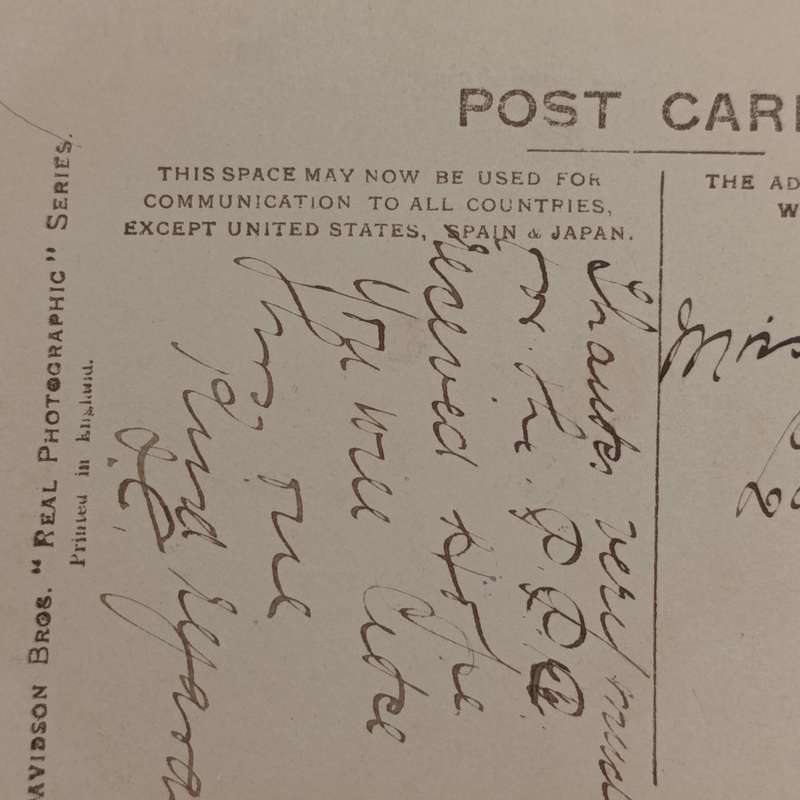 POST CAR
THIS SPACE MAY NOW BE USED FOR
COMMUNICATION TO ALL COUNTRIES,
EXCEPT UNITED STATES, SPAIN & JAPAN.
THE AD
W
AVIDSON BROS. "REAL PHOTOGRAPHIC" SERIES.
Printed in England.
Thanks very much
for the P.P.C
received Hope
you will like
this one
Kind
Miss